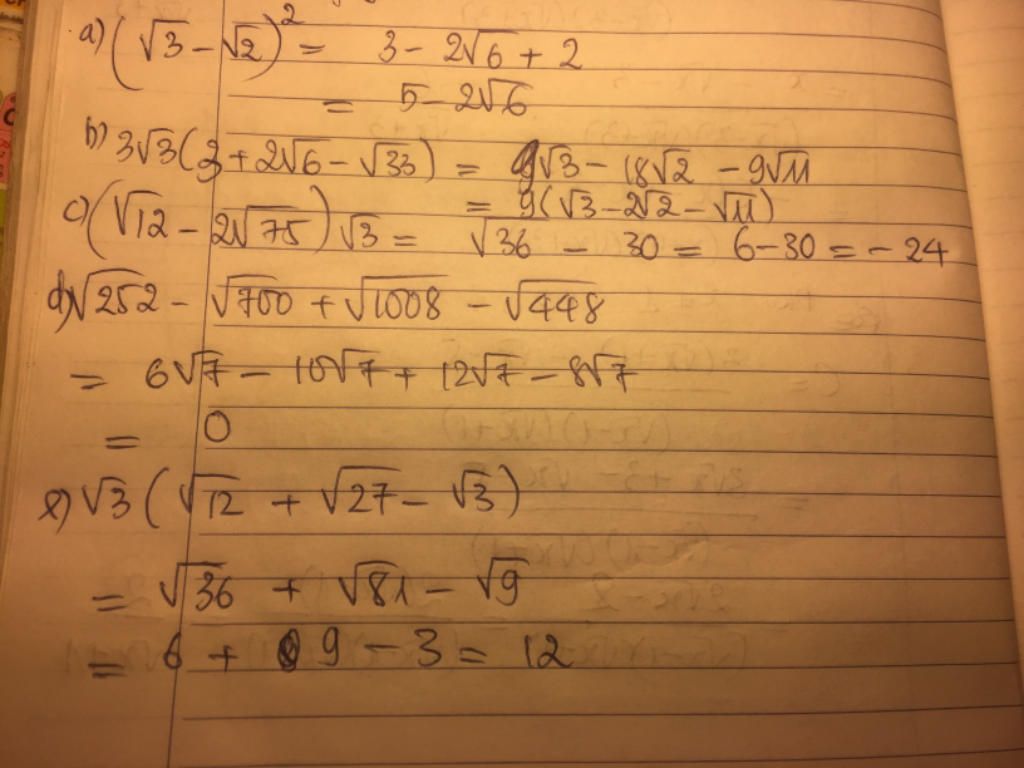 a) (√3 - √2)² = 3 - 2√6 + 2
= 5 - 2√6
b) 3√3(3 + 2√6 - √33) = 9√3 - 18√2 - 9√11
= 9(√3 - 2√2 - √11)
c) (√12 - 2√75)√3 = √36 - 30 = 6 - 30 = - 24
d) √252 - √700 + √1008 - √448
= 6√7 - 10√7 + 12√7 - 8√7
= 0
e) √3 (√12 + √27 - √3)
= √36 + √81 - √9
= 6 + 9 - 3 = 12